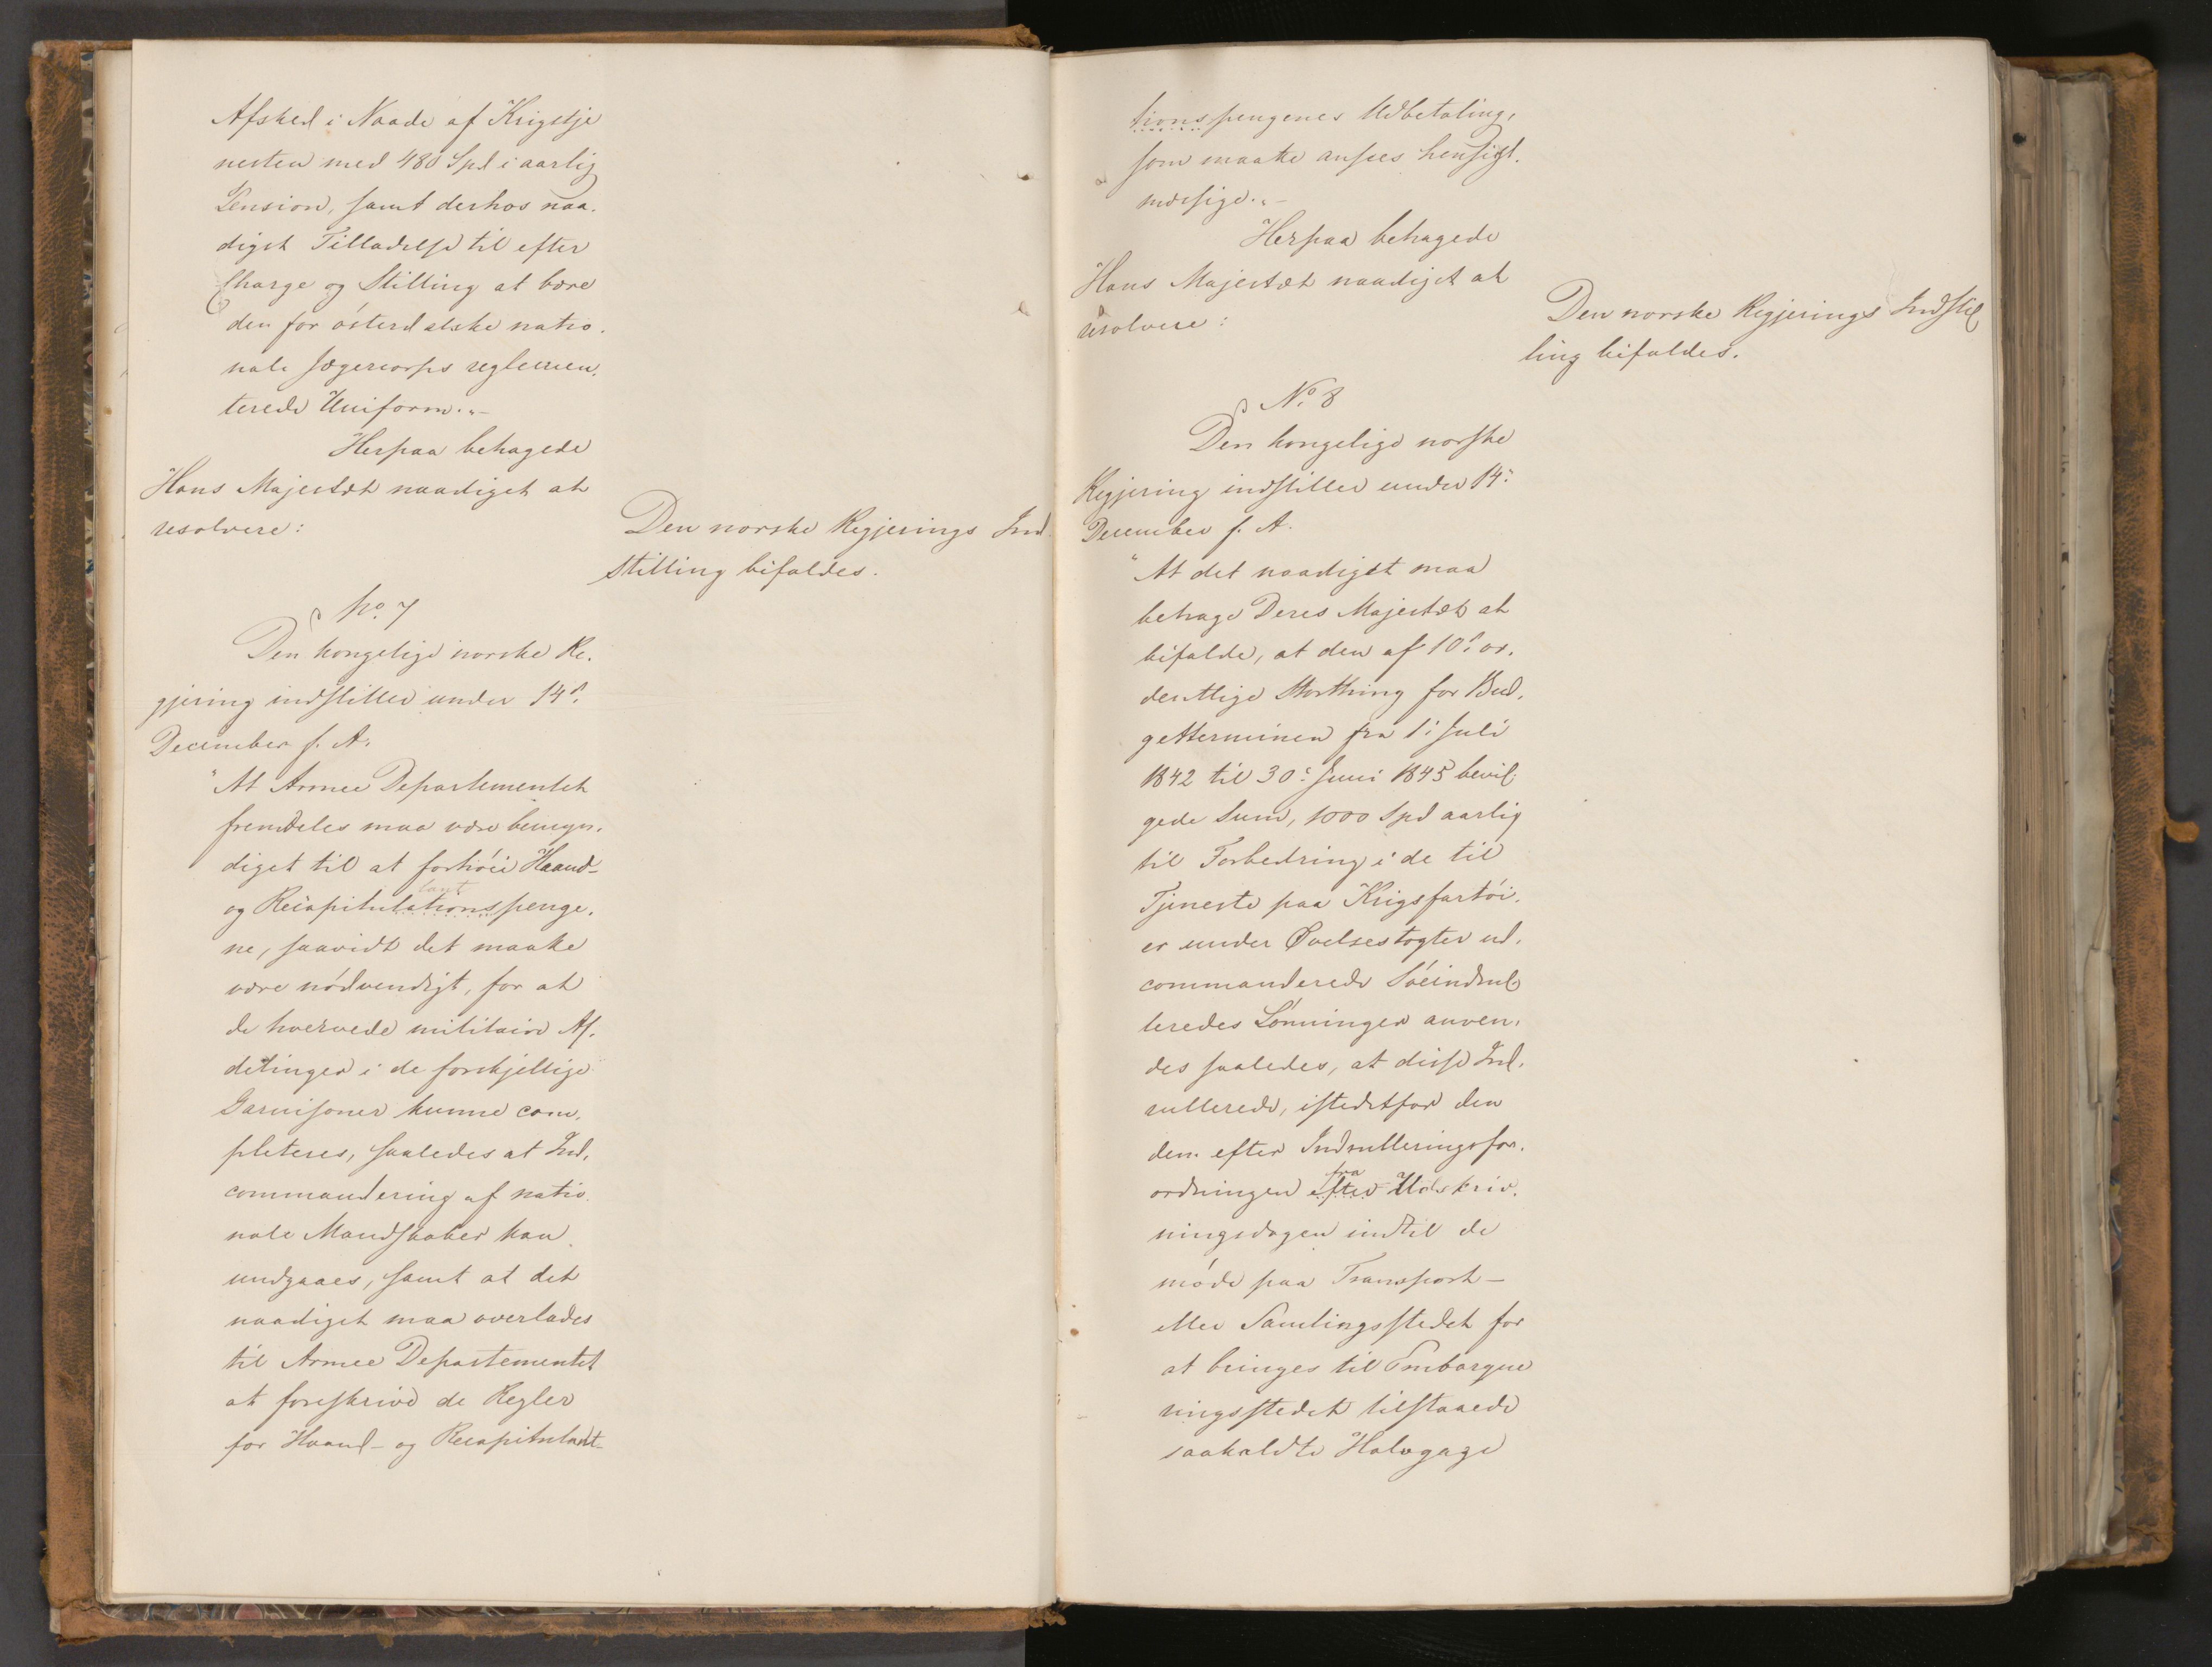 Afsked i Naade af Krigstje
nesten med 480 Spd i aarlig
Pension, samt derhos naa.
digst Tilladelse til efter
Charge og Stilling at bære
den for österdalske natio.
nale Jægercorps reglemen.
terede Uniform."-
Herpaa behagede
Hans Majestæt naadigst at
resolvere:
Den norske Regjerings Ind.
stilling bifaldes.
No. 7
Den kongelige norske Re.
gjering indstiller under 14d.
December f. A.
"At Armee Departementet
fremdeles maa være bemyn.
diget til at forhöie Haand-
og Recapitulationspenge.
tant
ne, saavidt det maatte
være nödvendigt, for at
de hvervede militaire Af.
delinger i de forskjellige
Garnisoner kunne com.
pleteres, saaledes at Ind.
commandering af natio.
nale Mandskaber kan
undgaaes, samt at det
naadigst maa overlades
til Armee Departementet
at foreskrive de Regler
for Haand- og Recapitulant-
tionspengenes Udbetaling,
som maatte ansees hensigt.
mæssige."-
Herpaa behagede
Hans Majestæt naadigst at
resolvere:
Den norske Regjerings Indstil
ling bifaldes.
No. 8
Den kongelige norske
Regjering indstiller under 14:
December f. A.
"At det naadigst maa
behage Deres Majestæt at
bifalde, at den af 10d. or.
dentlige Storthing for Bud.
getterminen fra 1: Juli
1842 til 30: Juni 1845 bevil
gede Sum, 1000 Spd aarlig
til Forbedring i de til
Tjeneste paa Krigsfartöi.
er under Øvelsestogter ud.
commanderede Söeindrul
leredes Lönninger anven.
des saaledes, at disse Ind.
rullerede, istedetfor den
dem efter Indrulleringsfor.
fra
ordningen efter Udskriv.
ningsdagen indtil de
möde paa Transport-
eller Samlingsstedet for
at bringes til Embarque
ringsstedet tilstaaede
saakaldte Halvgage